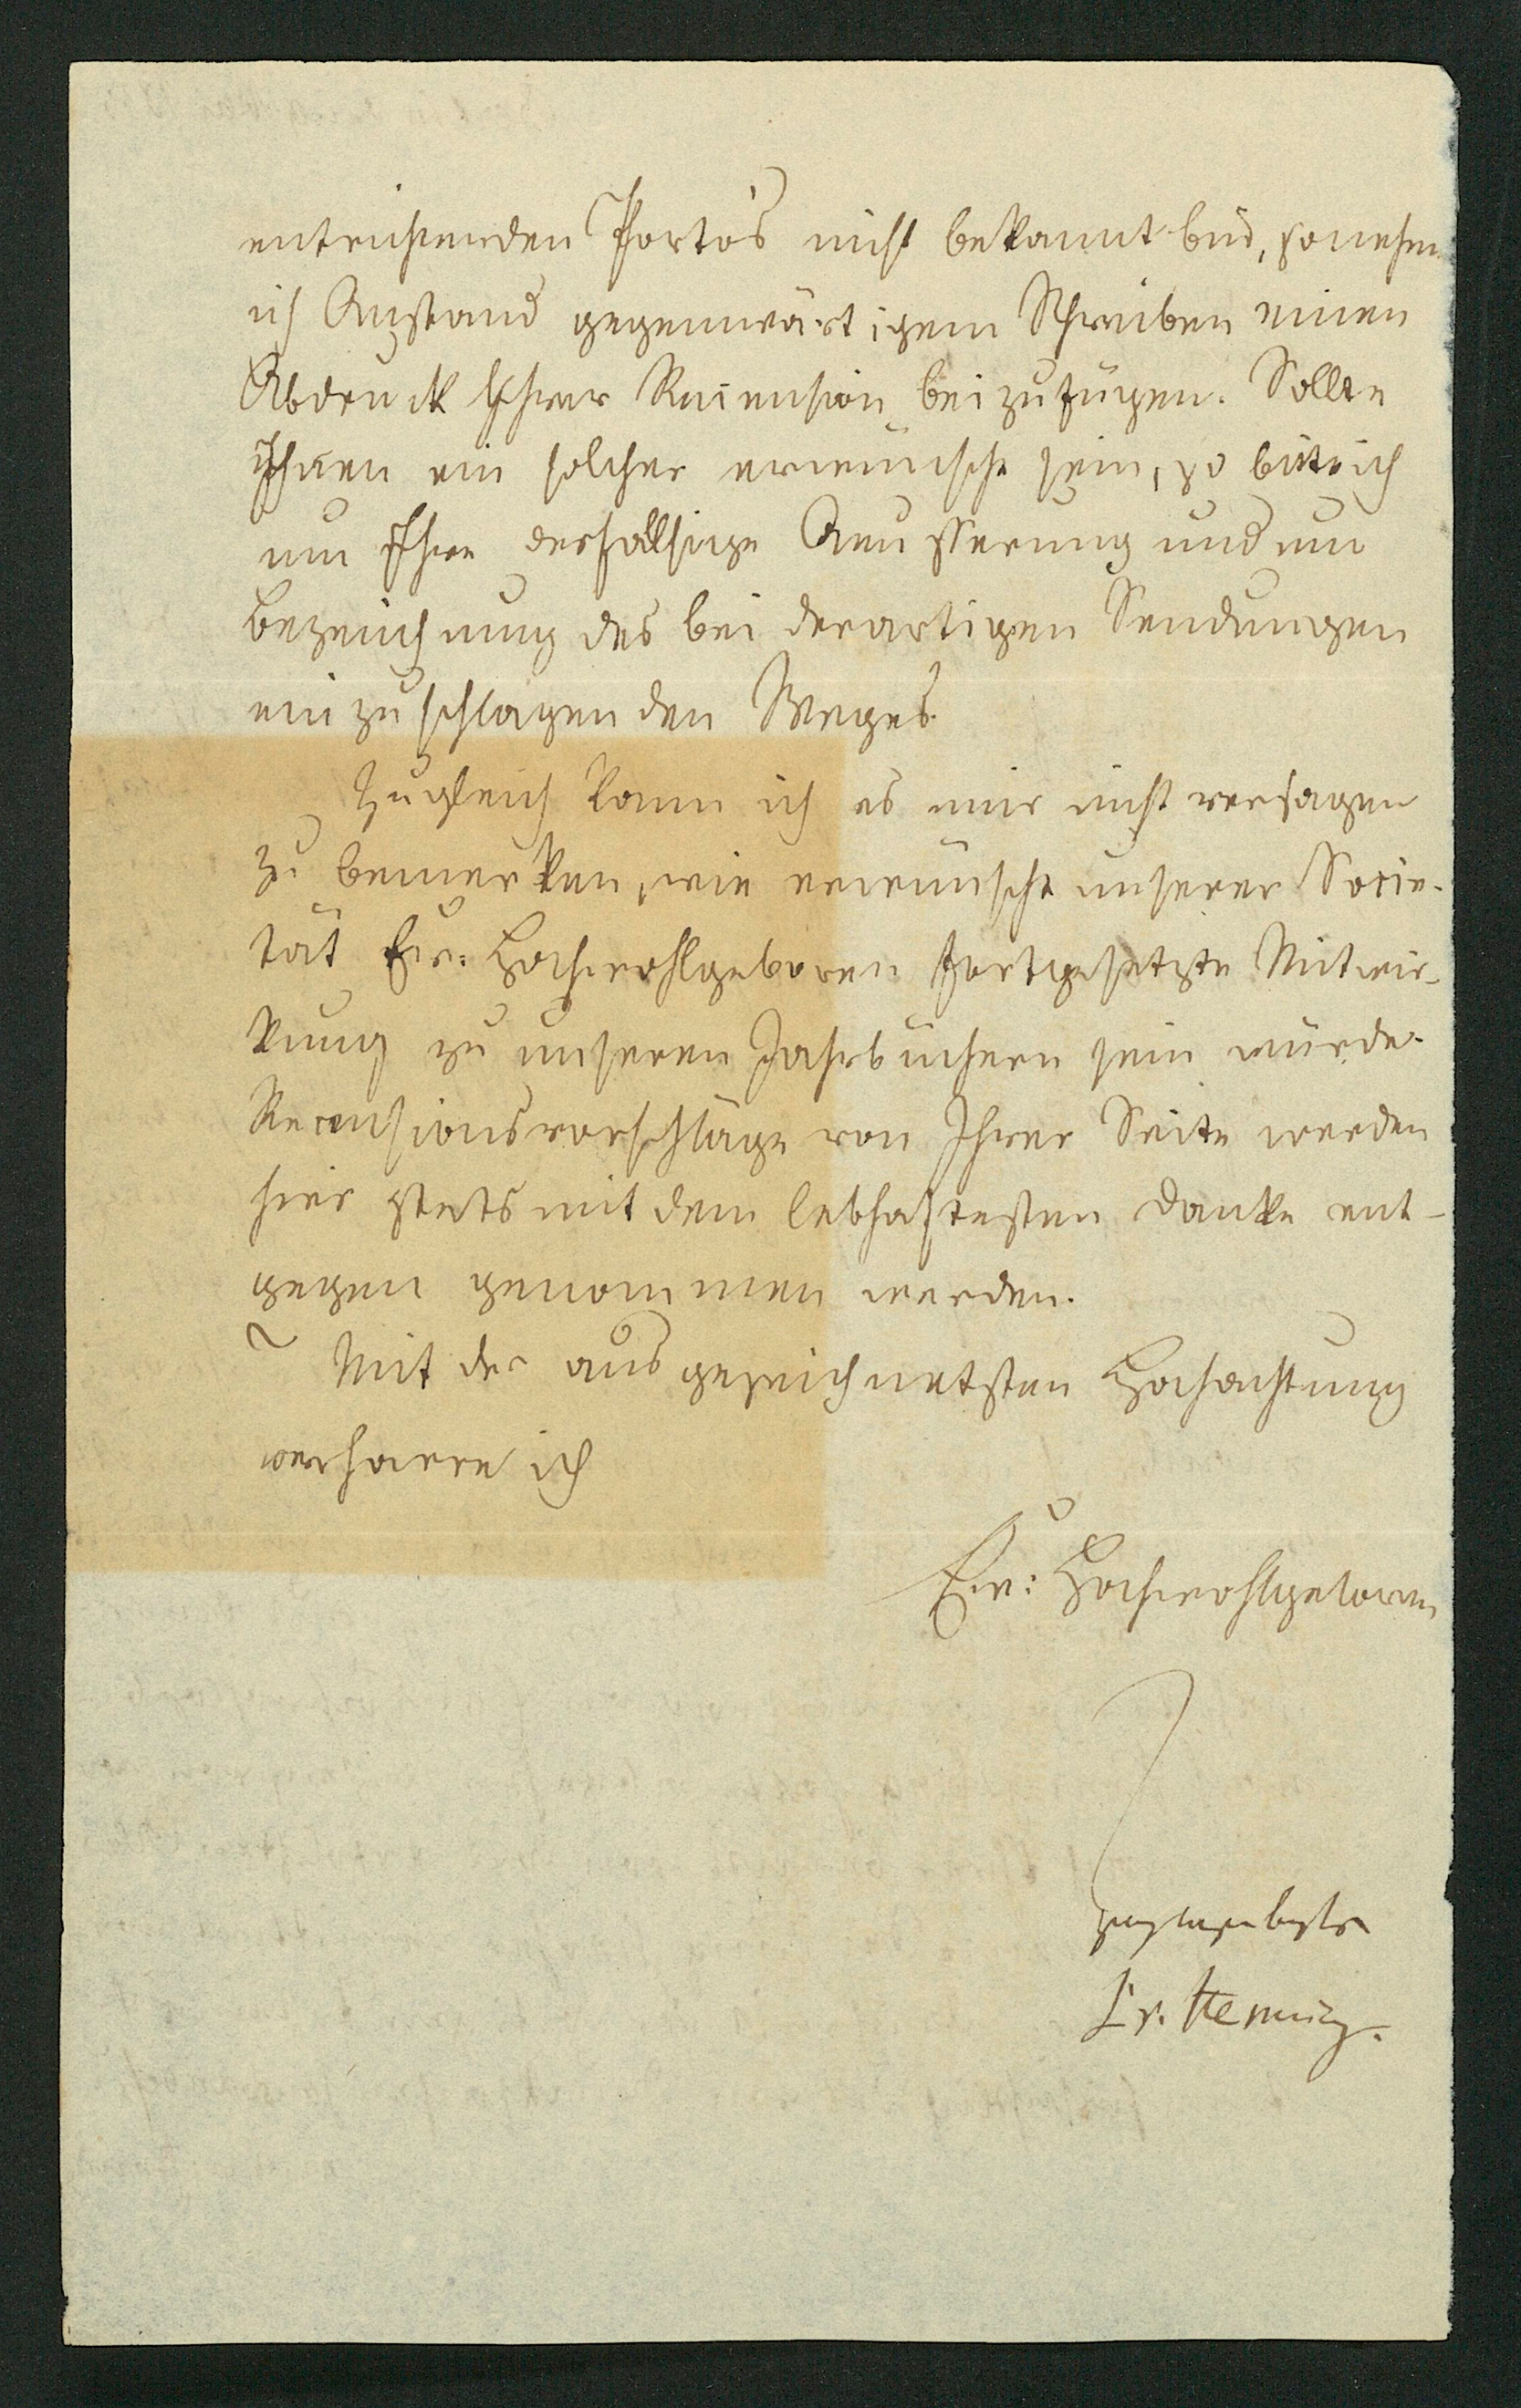 entrichtenden Porto's nicht bekannt bin, so nehm
ich Anstand gegenwärtigem Schreiben einen
Abdruck Ihrer Recension beizufügen. Sollte
Ihnen ein solcher erwünscht sein, so bitte ich
um Ihre desfallsige Aeusserung und um
Bezeichnung des bei derartigen Sendungen
einzuschlagenden Weges.
Zugleich kann ich es mir nicht versagen
zu bemerken, wie erwünscht unserer Socie-
tät Ew: Hochwohlgeboren fortgesetzte Mitwir-
kung zu unseren Jahrbüchern sein würde.
Recensionsvorschläge von Ihrer Seite werden
hier stets mit dem lebhaftesten Danke ent-
gegen genommen werden.
Mit der ausgezeichnetsten Hochachtung
verharre ich
Ew: Hochwohlgeboren
ganz ergebenster
L. v. Henning.